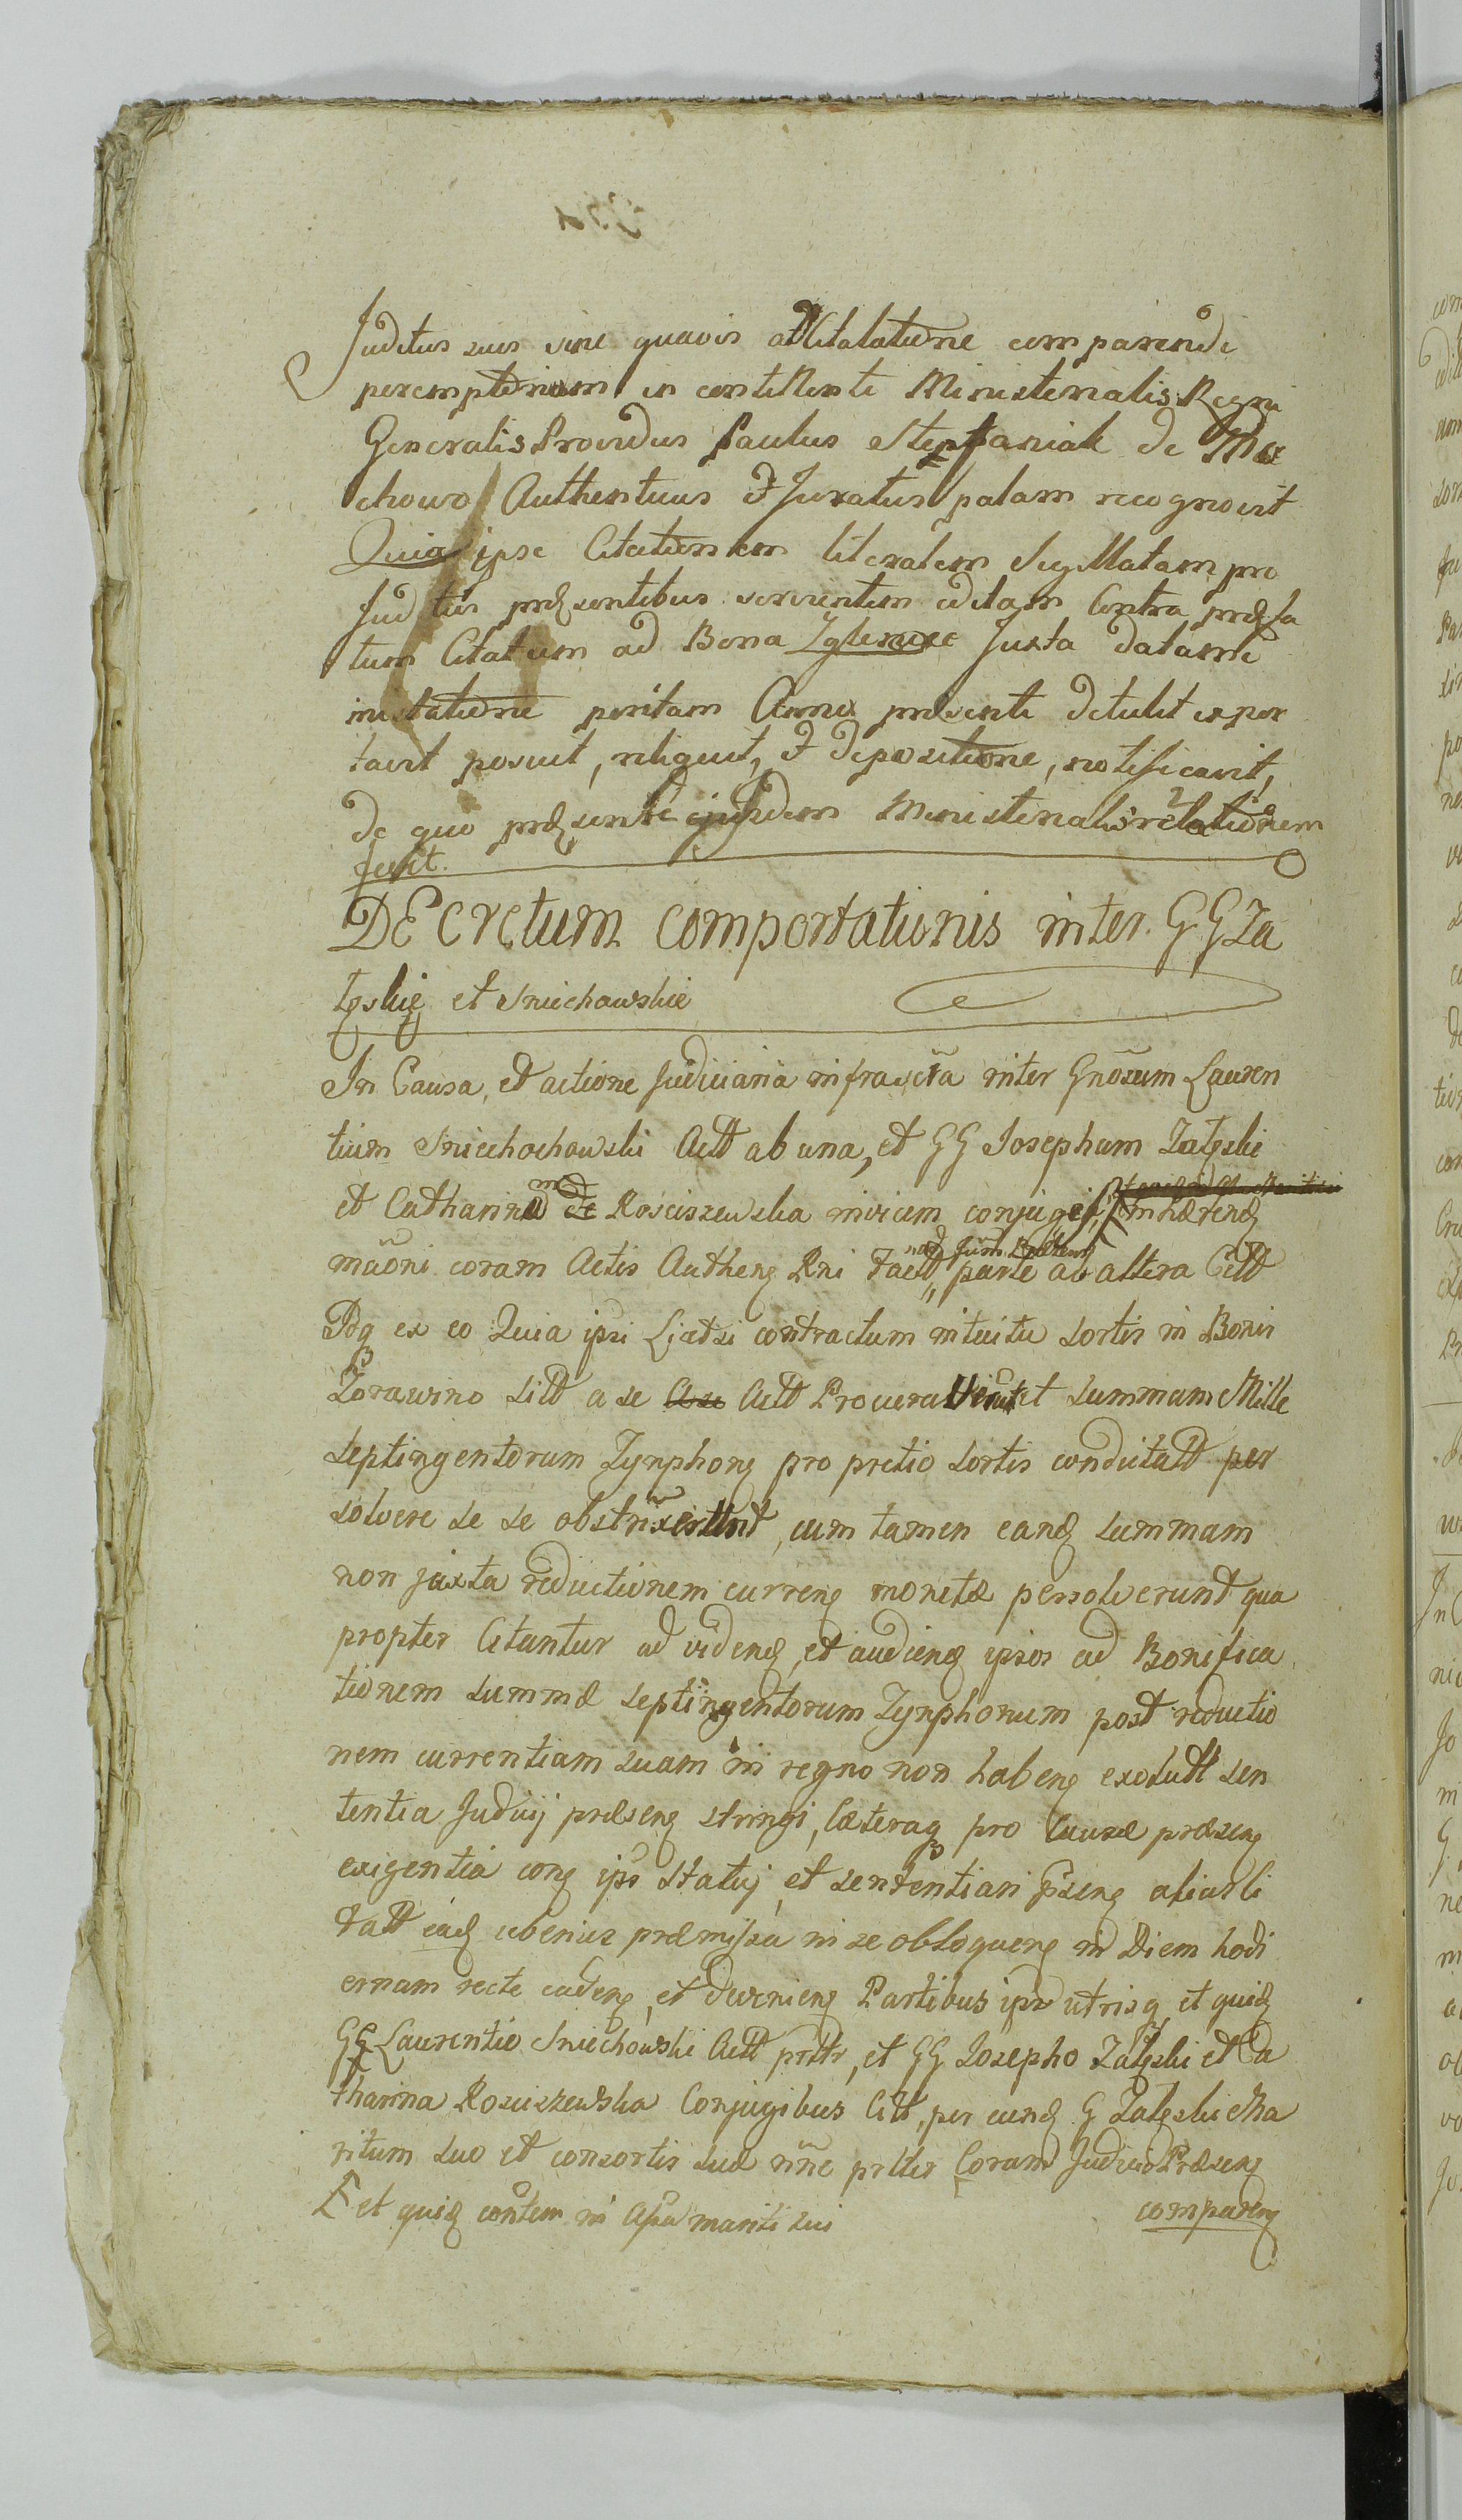 Juditus suis sine quavis attitalatione comparendi
peremptorium in continenti Ministerialis Regni
Generalis Providus Paulus Stepfaniak de Mo
chowo Authenticus et Juratus palam recognovit
Quia ipse Citationem literalem Sigillatam pro
Juditÿs prȩsentibus servientem editam Contra prȩfa
tum Citatum ad Bona Zglenice Juxta datam
positam Anno præsenti detulit expor
tavit posuit, reliquit, et depositione, notificavit,
de quo prȩsente ejusdem Ministerialis relationem
fecit.
DECretum comportationis inter GG Za
lȩskie et Sniechowskie
In Causa, et actione Judiciaria infrascta inter Gnosum Lauren
tium Sniechochowski Actt ab una, et GG Josephum Zalȩski
et Catharina de Rosciszewska invicem conjuges, inhærend
maoni coram Actis Autheng Rni factt parte ab altera Citt
Idq ex eo Quia ipsi Licet si contractum intuitu sortis in Bonis
Zorawino sitt a se a se Actt Procuraverunt et summam Mille
septingentorum Tynphong pro pretio sortis conductatt per
solvere se se obstrixerunt, cum tamen eand summam
non juxta reductionem curreng monetæ persolverunt qua
propter Citantur ad videnđ, et audienđ ipsos ad Bonifica
tionem summæ septingentorum Tynphonum post reductio
nem currentiam suam in regno non habeng exolutt sen
tentia Judicij præseng stringi, Cæteraq pro Causæ præseng
exigentia cong ips Statuj, et sententiari pseng alias Ci
tatt eađ uberius præmissa in se obloqueng in Diem hodi
ernam recte cadeng, et devening Partibus ips utrisq et quiđ
GG Laurentio Sniechowski Actt prttr, et GG Josepho Zalȩski et Ca
tharina Rosciszewska Conjugibus Citt, per eunđ G Zalȩski Ma
ritum suo et consortis suæ nne prltis Coram Judicio Præseng
et quiđ contem in Assa mariti sui
compareng